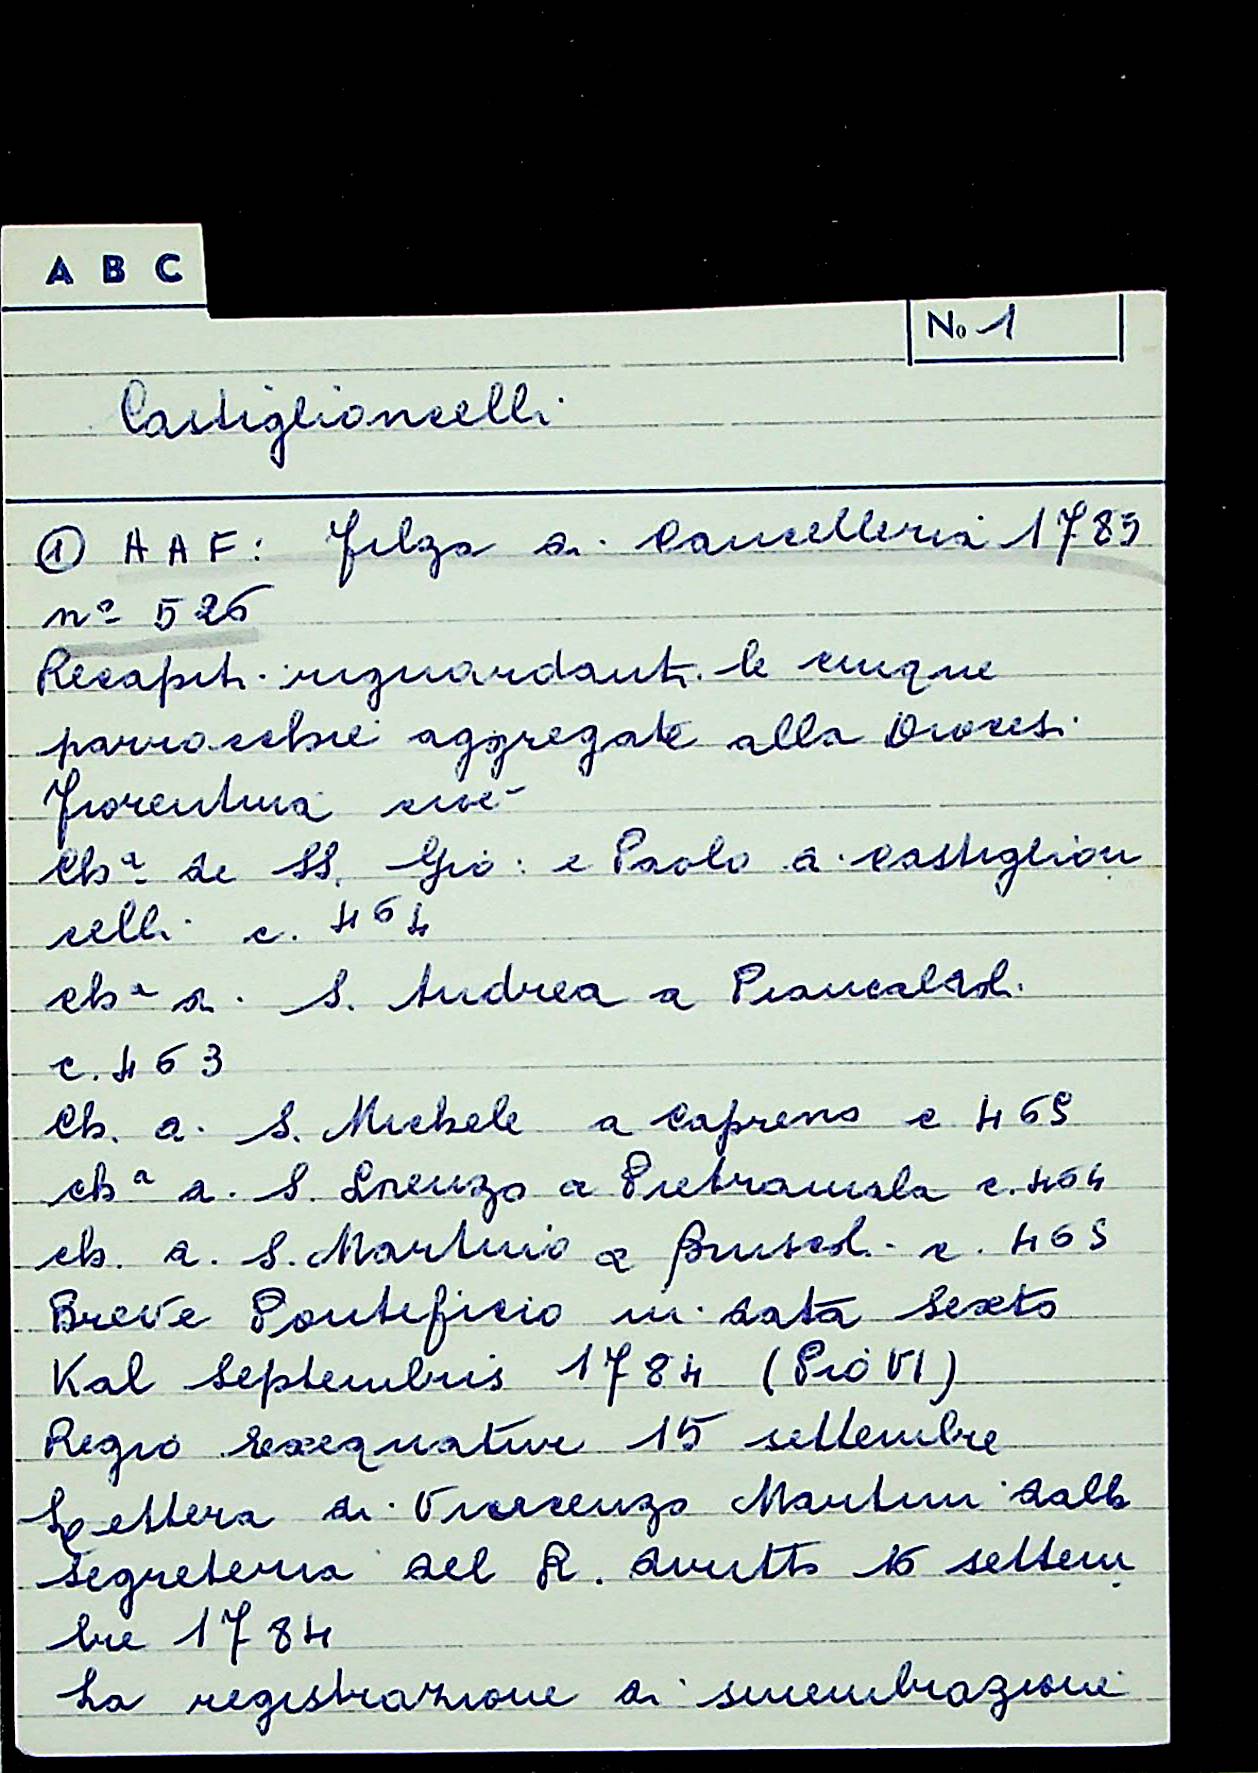 A B C
No 1
Castiglioncelli
① AAF: Filza di Cancelleria 1785
nº 526
Recapiti riguardanti le cinque
parrocchie aggregate alla Diocesi
fiorentina cioè
Chª de SS. Gio: e Paolo a Castiglion
celli c. 464
chª di S. Andrea a Piancaldoli
c. 463
Ch. di S. Michele a Capreno c 465
chª di S. Lorenzo a Pietramala c. 464
ch. di S. Martino a Bruscoli c. 465
Breve Pontificio in data Sexto
Kal Septembris 1784 (Pio VI)
Regio Exequatur 15 settembre
Lettera di Vincenzo Martini dalla
Segreteria del R. Diritto 16 settem
bre 1784
La registrazione di smembrazione